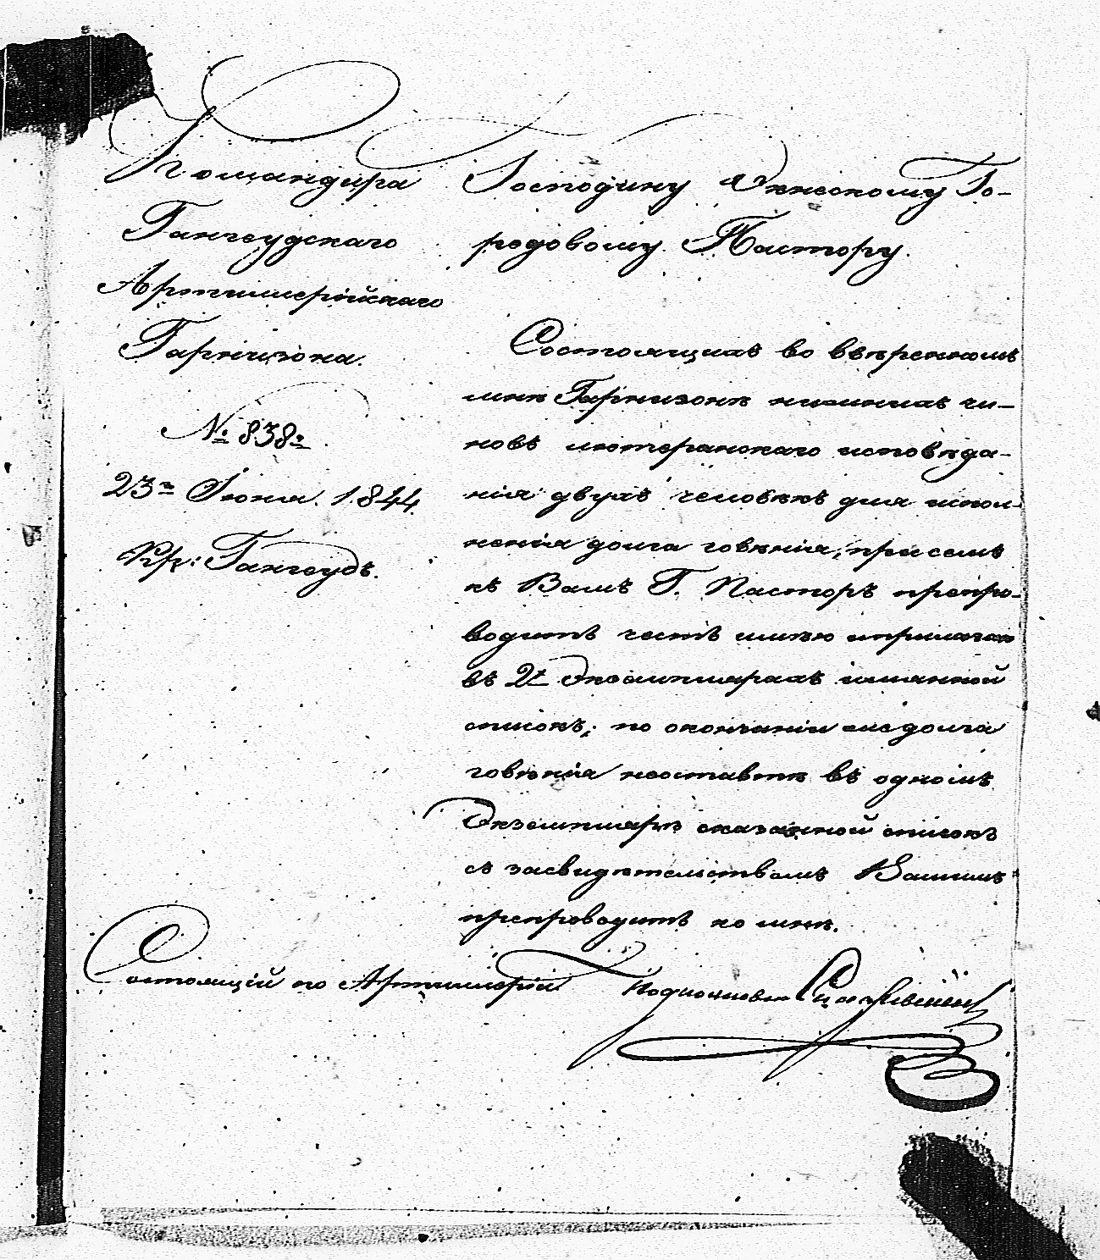 Командира
Гангеудскаго
Артиллерійскаго
Гарнизона.
№ 838.
23го Іюня 1844.
Кр: Гангеудъ.
Господину Экнескому Го-
родовому Пастору.
Состоящихъ во ввѣренномъ
мнѣ Гарнизонѣ нижнихъ чи-
новъ лютеранскаго исповѣда-
нія двухъ человѣкъ для испол-
ненія долга говѣнія, при семъ
къ Вамъ Г. Пасторъ препро-
водить честь имѣю и прилагаю
въ 2х Экземплярахъ имянной
списокъ; по окончаніи долга
говѣнія неоставить въ одномъ
Экземплярѣ сказанной списокъ
съ засвидѣтельствомъ Вашимъ
препроводить ко мнѣ.
Состоящій по Артиллеріи Подполковникъ